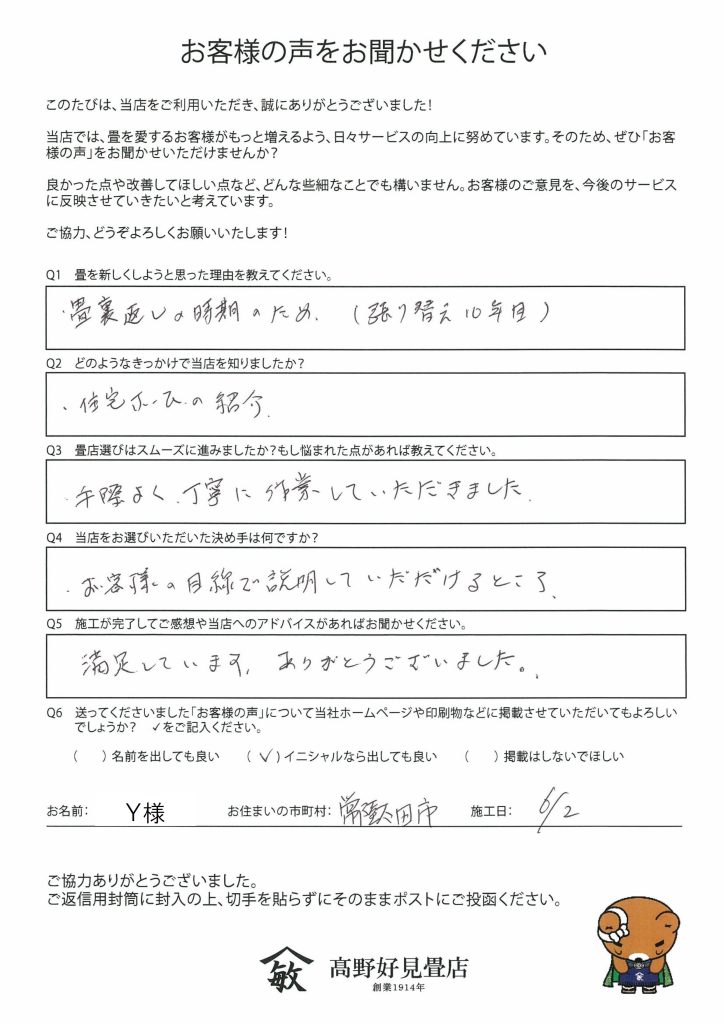 お客様の声をお聞かせください
このたびは、当店をご利用いただき、誠にありがとうございました!
当店では、畳を愛するお客様がもっと増えるよう、日々サービスの向上に努めています。そのため、ぜひ「お客
様の声」をお聞かせいただけませんか?
良かった点や改善してほしい点など、どんな些細なことでも構いません。お客様のご意見を、今後のサービス
に反映させていきたいと考えています。
ご協力、どうぞよろしくお願いいたします!
Q1 畳を新しくしようと思った理由を教えてください。
・畳裏返しの時期のため、(張り替え10年目)
Q2 どのようなきっかけで当店を知りましたか?
・住宅ホームの紹介。
Q3 畳店選びはスムーズに進みましたか?もし悩まれた点があれば教えてください。
・手際よく、丁寧に作業していただきました。
Q4 当店をお選びいただいた決め手は何ですか?
・お客様の目線で説明していただけるところ。
Q5 施工が完了してご感想や当店へのアドバイスがあればお聞かせください。
満足しています。ありがとうございました。
Q6 送ってくださいました「お客様の声」について当社ホームページや印刷物などに掲載させていただいてもよろしい
でしょうか? ✓をご記入ください。
( )名前を出しても良い (✓)イニシャルなら出しても良い ( )掲載はしないでほしい
お名前: Y様 お住まいの市町村: 常陸太田市 施工日: 6/2
ご協力ありがとうございました。
ご返信用封筒に封入の上、切手を貼らずにそのままポストにご投函ください。
敏 髙野好見畳店
創業1914年